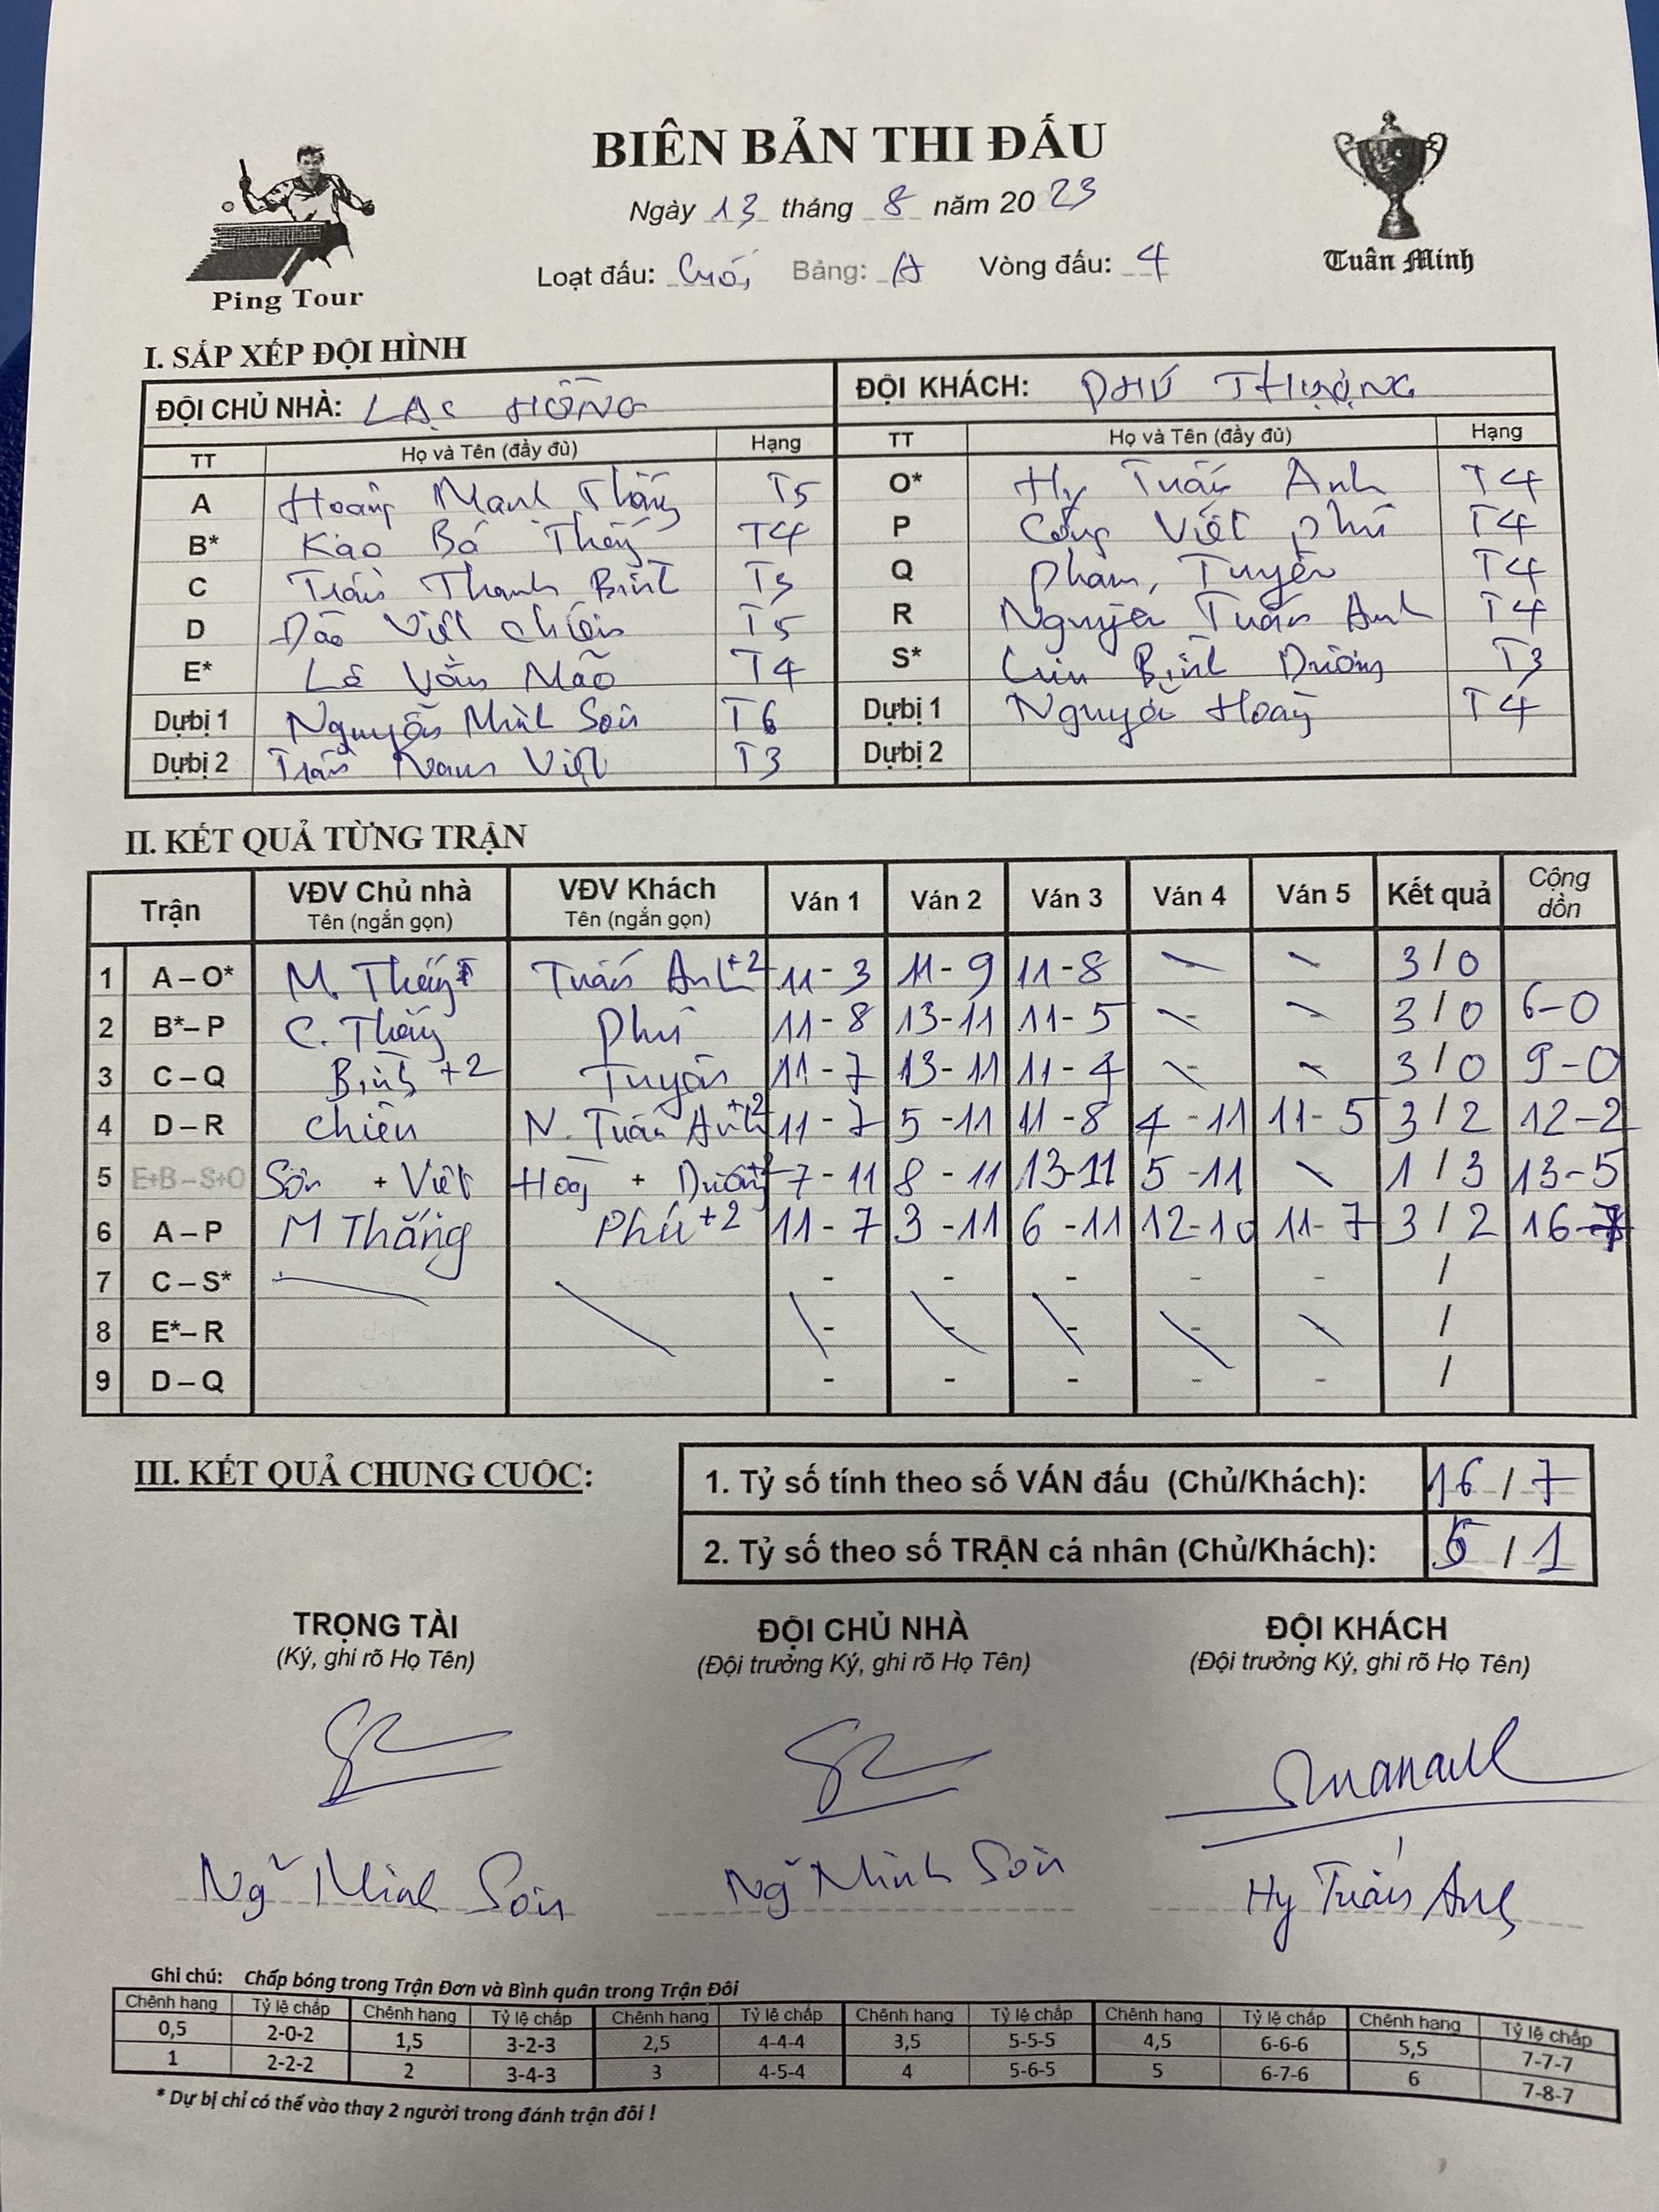 BIÊN BẢN THI ĐẤU
Ngày 13 tháng 8 năm 2023
Loạt đấu: Cuối Bảng: A Vòng đấu: 4
Ping Tour
Tuân Minh
I. SẮP XẾP ĐỘI HÌNH
ĐỘI CHỦ NHÀ: LẠC HỒNG ĐỘI KHÁCH: PHÚ THƯỢNG
TT Họ và Tên (đầy đủ) Hạng TT Họ và Tên (đầy đủ) Hạng
A Hoàng Mạnh Thắng T5 O* Hy Tuấn Anh T4
B* Bá T4 P Công Việt Phú T4
C Trần Thanh Bình T3 Q Phạm Tuyên T4
D Đào Viết Chiến T5 R Nguyễn Tuấn Anh T4
E* Lê Văn Mão T4 S* Bình Dương T3
Dự bị 1 Nguyễn Minh Sơn T6 Dự bị 1 Nguyễn Hoàng T4
Dự bị 2 Trần Nam Việt T3 Dự bị 2
II. KẾT QUẢ TỪNG TRẬN
Trận VĐV Chủ nhà Tên (ngắn gọn) VĐV Khách Tên (ngắn gọn) Ván 1 Ván 2 Ván 3 Ván 4 Ván 5 Kết quả Cộng dồn
1 A – O* M. Thắng Tuấn Anh +2 11 - 3 11 - 9 11 - 8 3 / 0
2 B* – P Phú 11 - 8 13 - 11 11 - 5 3 / 0 6 - 0
3 C – Q Bình +2 Tuyên 11 - 7 13 - 11 11 - 4 3 / 0 9 - 0
4 D – R Chiến N. Tuấn Anh +2 11 - 7 5 - 11 11 - 8 4 - 11 11 - 5 3 / 2 12 - 2
5 E+B – S+O Sơn + Việt Hoàng + Dương 7 - 11 8 - 11 13 - 11 5 - 11 1 / 3 13 - 5
6 A – P M Thắng Phú +2 11 - 7 3 - 11 6 - 11 12 - 10 11 - 7 3 / 2 16 - 7
7 C – S* - - - - - /
8 E* – R - - - - - /
9 D – Q - - - - - /
III. KẾT QUẢ CHUNG CUỘC:
1. Tỷ số tính theo số VÁN đấu (Chủ/Khách): 16 / 7
2. Tỷ số theo số TRẬN cá nhân (Chủ/Khách): 5 / 1
TRỌNG TÀI ĐỘI CHỦ NHÀ ĐỘI KHÁCH
(Ký, ghi rõ Họ Tên) (Đội trưởng Ký, ghi rõ Họ Tên) (Đội trưởng Ký, ghi rõ Họ Tên)
Ng̃ Minh Sơn Ng̃ Minh Sơn Hy Tuấn Anh
Ghi chú: Chấp bóng trong Trận Đơn và Bình quân trong Trận Đôi
Chênh hạng Tỷ lệ chấp Chênh hạng Tỷ lệ chấp Chênh hạng Tỷ lệ chấp Chênh hạng Tỷ lệ chấp Chênh hạng Tỷ lệ chấp Chênh hạng Tỷ lệ chấp
0,5 2-0-2 1,5 3-2-3 2,5 4-4-4 3,5 5-5-5 4,5 6-6-6 5,5 7-7-7
1 2-2-2 2 3-4-3 3 4-5-4 4 5-6-5 5 6-7-6 6 7-8-7
* Dự bị chỉ có thể vào thay 2 người trong đánh trận đôi !